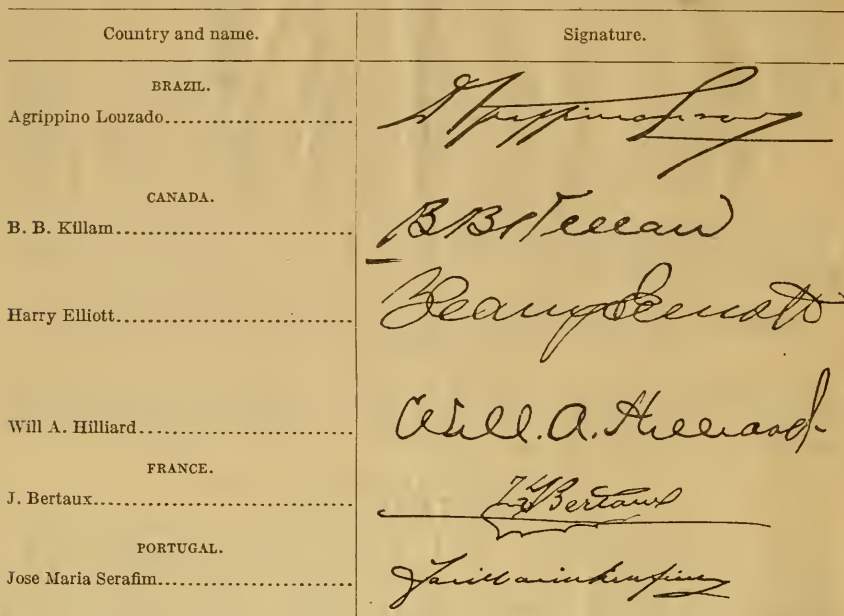 Country and name. Signature.
BRAZIL.
Agrippino Louzado
CANADA.
B. B. Killam B B Killam
Harry Elliott Harry Elliott
Will A. Hilliard Will. A. Hilliard
FRANCE.
J. Bertaux Bertaux
PORTUGAL.
Jose Maria Serafim